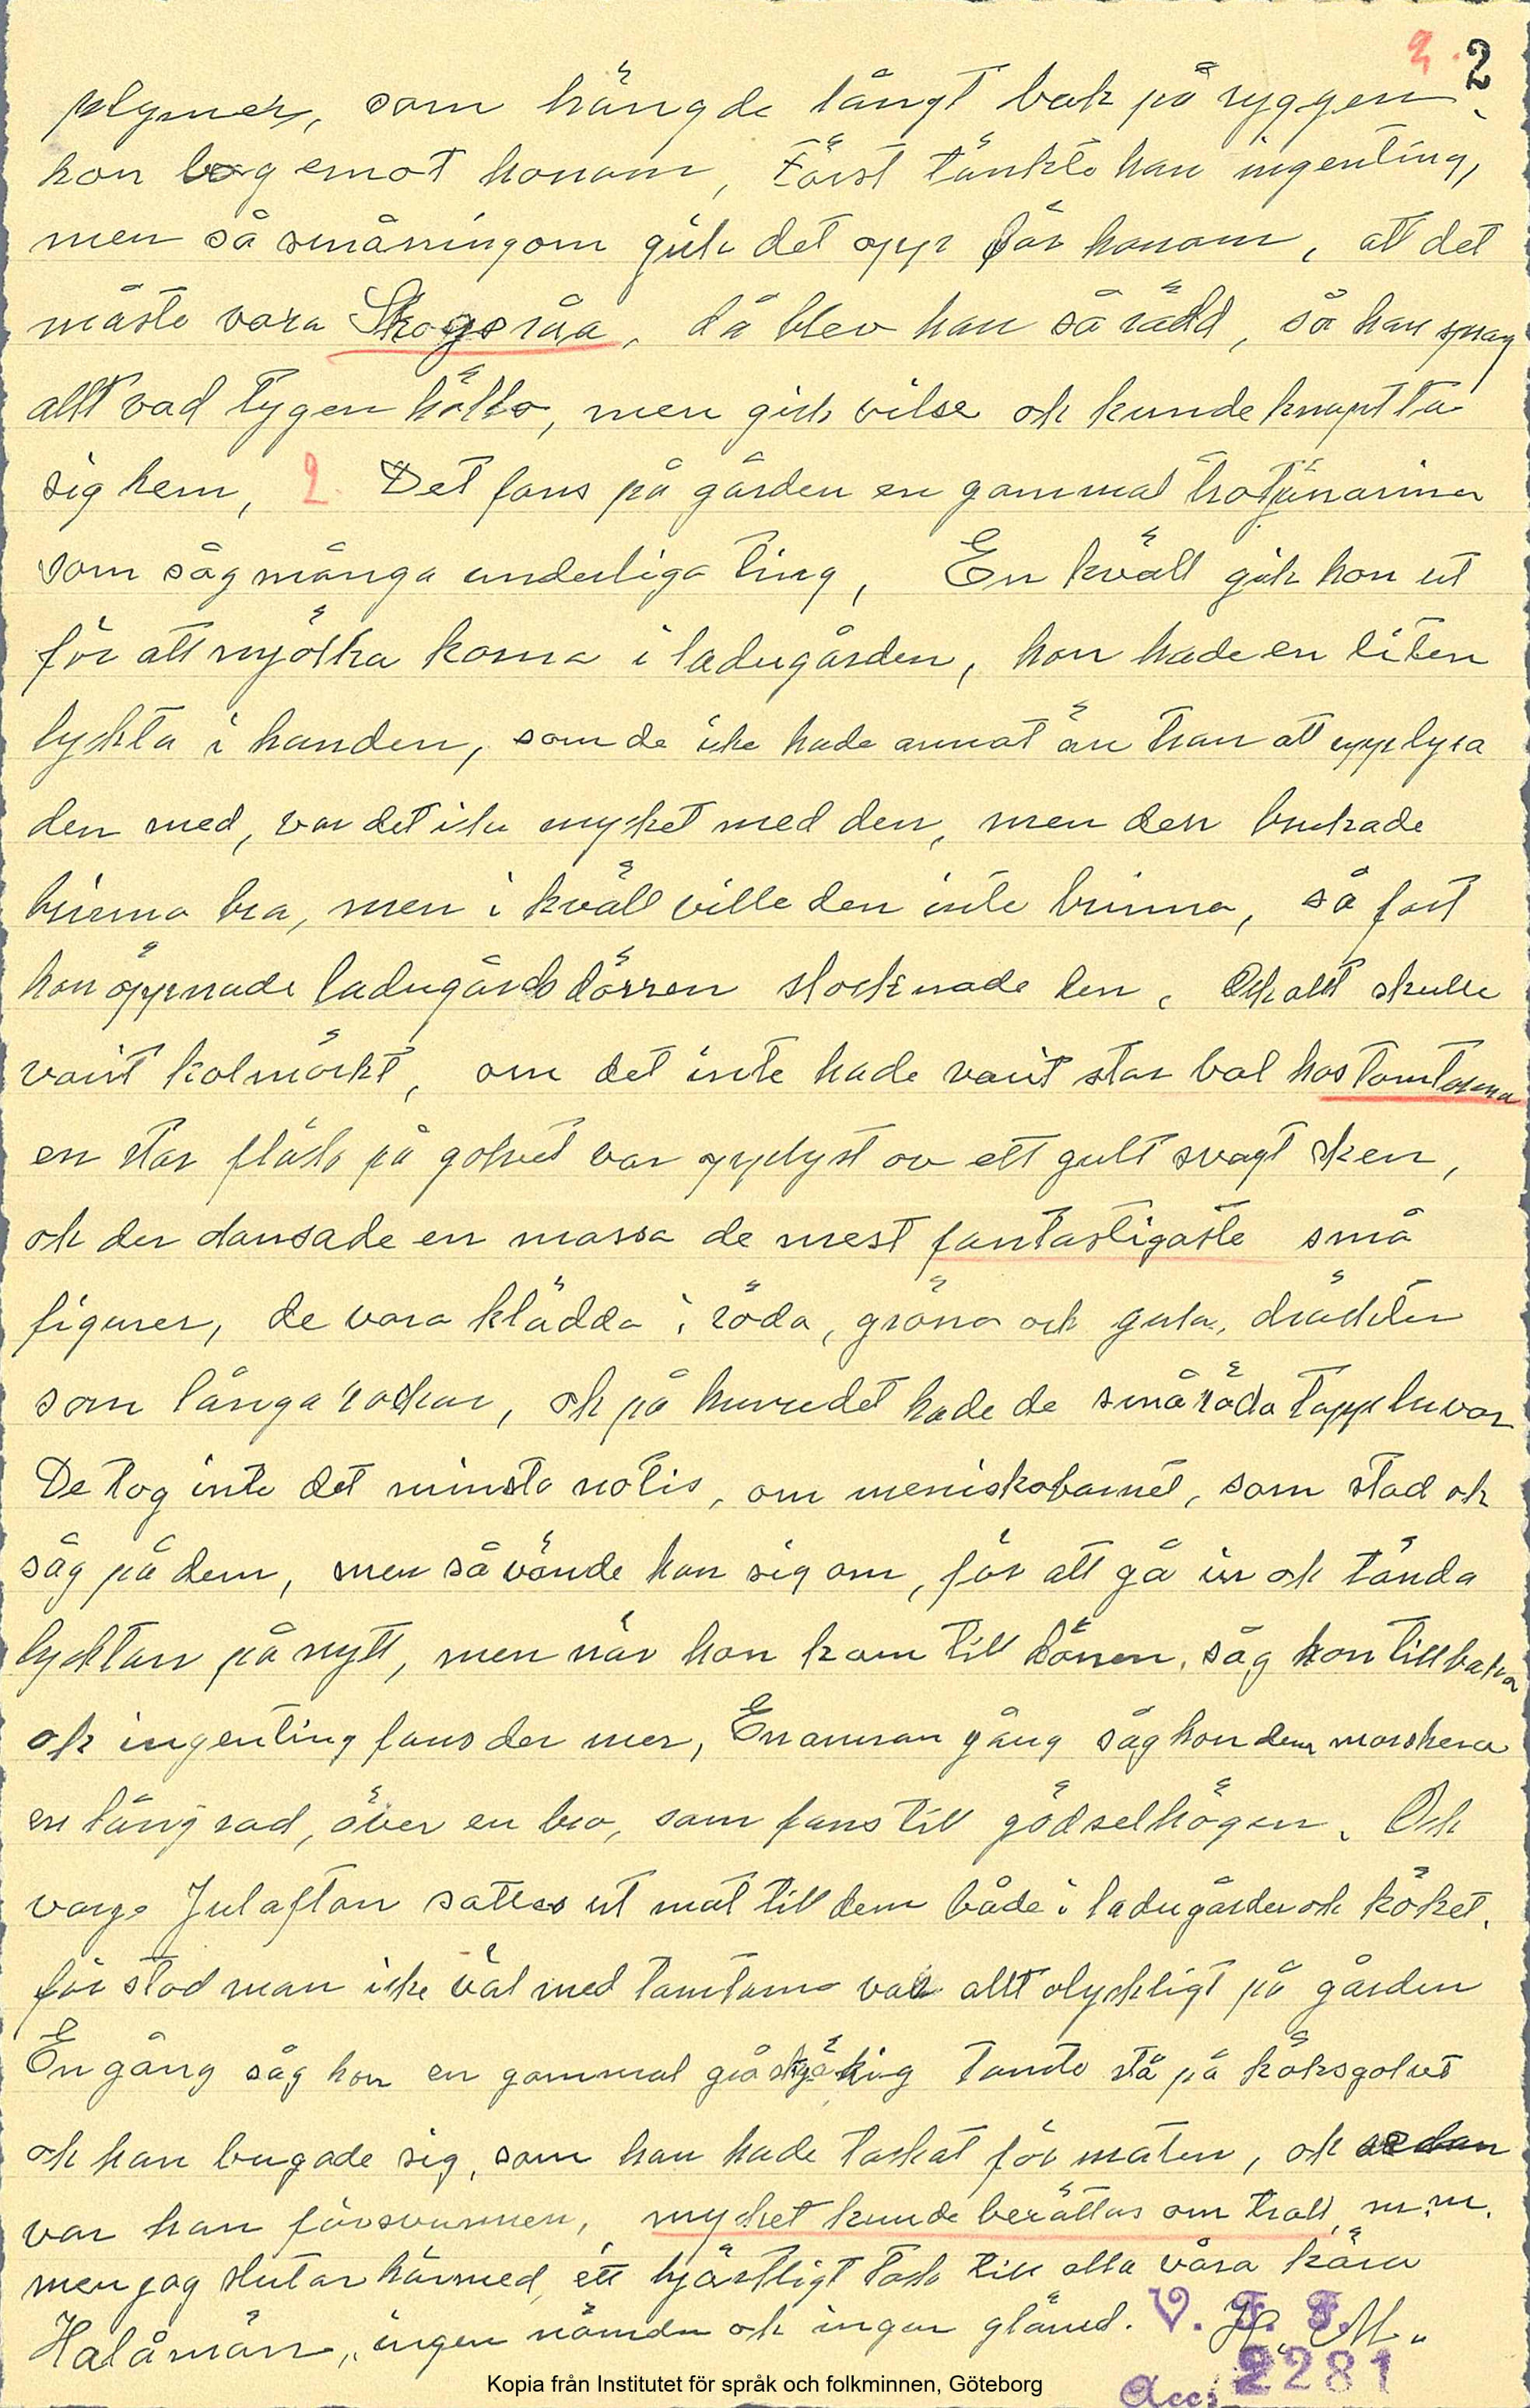 2. 2
plymer, som hängde långt bak på ryggen.
hon log emot honom, Först tänkte han ingenting,
men så småningom gick det opp för honom, att det
måste vara Skogsråa, då blev han så rädd, så han sprag
allt vad tygen höllo, men gick vilse ok kunde knapt ta
sig hem, 2. Det fans på gården en gammal trotjänarinna
som såg många underliga ting, En kväll gick hon ut
för att mjölka korna i ladugården, hon hade en liten
lykta i handen, som de icke hade annat än tran att upplysa
den med, var det icke mycket med den, men den brukade
brinna bra, men i kväll ville den inte brinna, så fort
hon öppnade ladugårdsdörren slocknade den. Ock allt skulle
varit kolmörkt, om det inte hade varit stor bal hos tomtarna
en stor fläck på golvet var opplyst av ett gult svagt sken,
ok der dansade en massa de mest fantastigaste små
figurer, de vora klädda i röda, gröna och gula, dräkter
som långa rockar, ok på huvudet hade de små röda toppluvor
De tog inte det minsta notis, om meniskobarnet, som stod ok
såg på dem, men så vände hon sig om, för att gå in ok tända
lycktan på nytt, men när hon kom till dörren, såg hon tillbaka
ok ingenting fans der mer, En annan gång såg hon dem marshera
en lång rad, över en bro, som fans till gödselhögen. Och
varje Julafton sattes ut mat till dem både i ladugården ok köket.
för stod man icke väl med tomtarna var allt olyckligt på gården
En gång såg hon en gammal gråskäkig tomte stå på köksgolvet
ok han bugade sig, som han hade tackat för maten, ok sedan
var han försvunnen, mycket kunde berättas om troll m.m.
men jag slutar härmed, ett hjärtligt tack till alla våra kära
Halåmän, ingen nämnd ok ingen glömd. H. M.
V. F. F.
Acc. 2281
Kopia från Institutet för språk och folkminnen, Göteborg